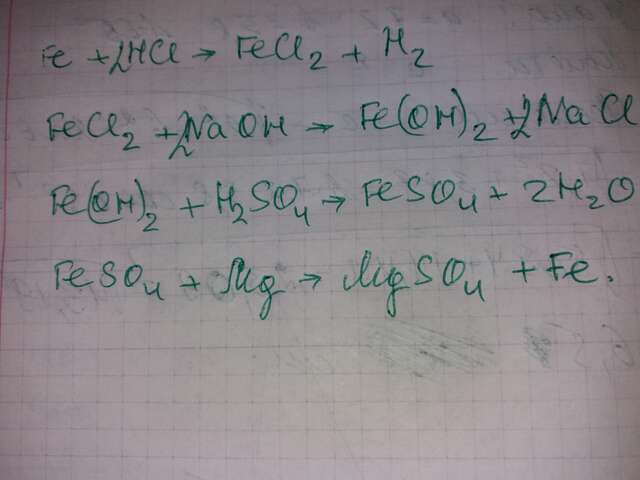 Fe + 2HCl → FeCl₂ + H₂
FeCl₂ + 2NaOH → Fe(OH)₂ + 2NaCl
Fe(OH)₂ + H₂SO₄ → FeSO₄ + 2H₂O
FeSO₄ + Mg → MgSO₄ + Fe.